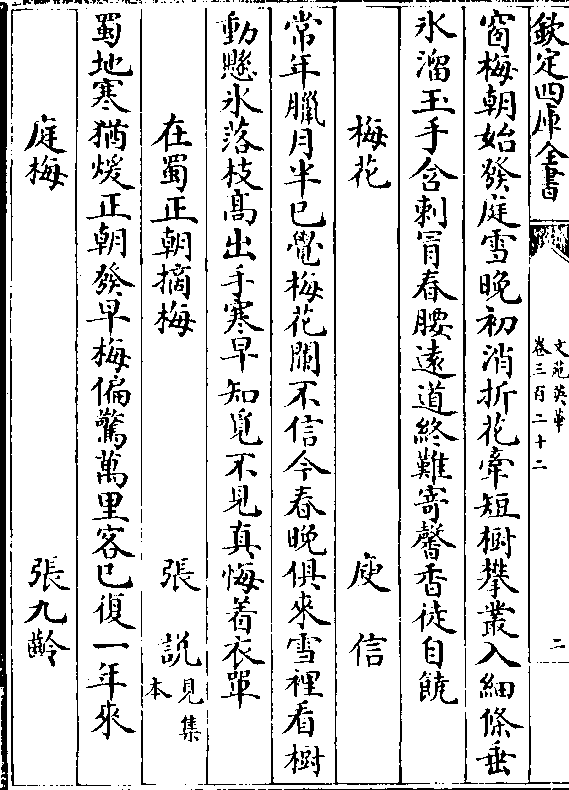 欽定四庫全書
文苑英華
卷三百二十二
二
窗梅朝始發庭雪晚初消折花牽短樹攀叢入細條垂
氷溜玉手含刺罥春腰遠道終難寄馨香徒自饒
梅花 庾信
常年臘月半已覺梅花闌不信今春晚俱來雪裡看樹
動懸氷落枝髙出手寒早知覓不見真悔着衣單
在蜀正朝摘梅 張說 見集本
蜀地寒猶煖正朝發早梅偏驚萬里客已復一年來
庭梅 張九齡